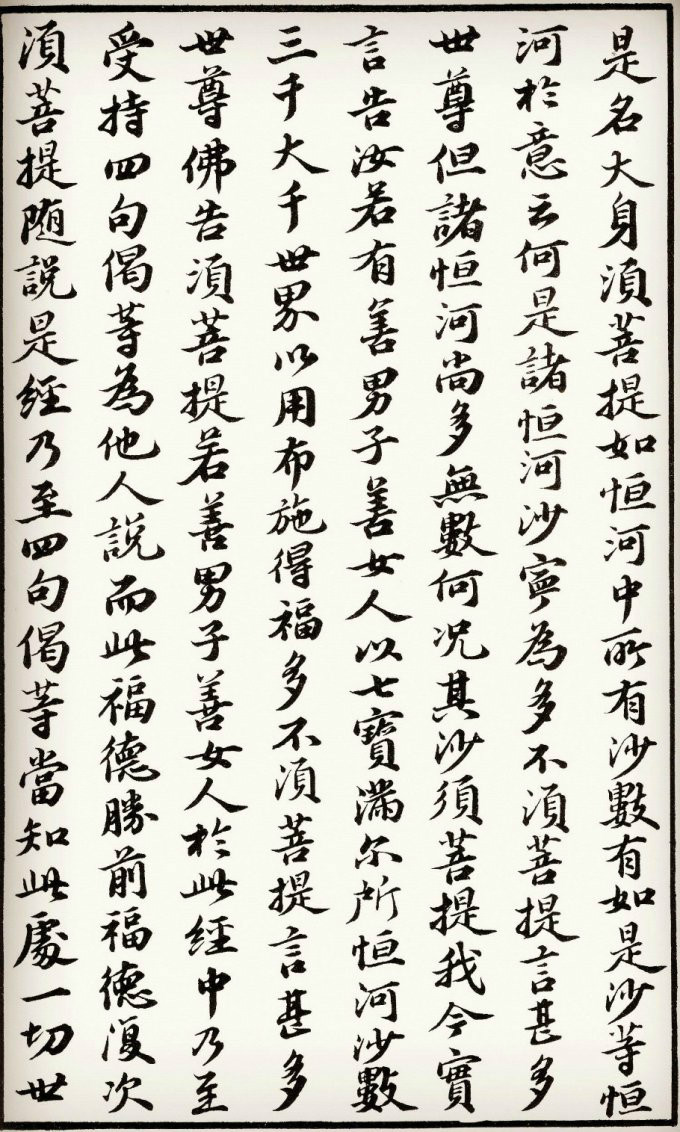 是名大身須菩提如恒河中所有沙數有如是沙等恒
河於意云何是諸恒河沙寧為多不須菩提言甚多
世尊但諸恒河尚多無數何况其沙須菩提我今實
言告汝若有善男子善女人以七寶滿尔所恒河沙數
三千大千世界以用布施得福多不須菩提言甚多
世尊佛告須菩提若善男子善女人於此經中乃至
受持四句偈等為他人說而此福德勝前福德復次
須菩提随說是經乃至四句偈等當知此處一切世